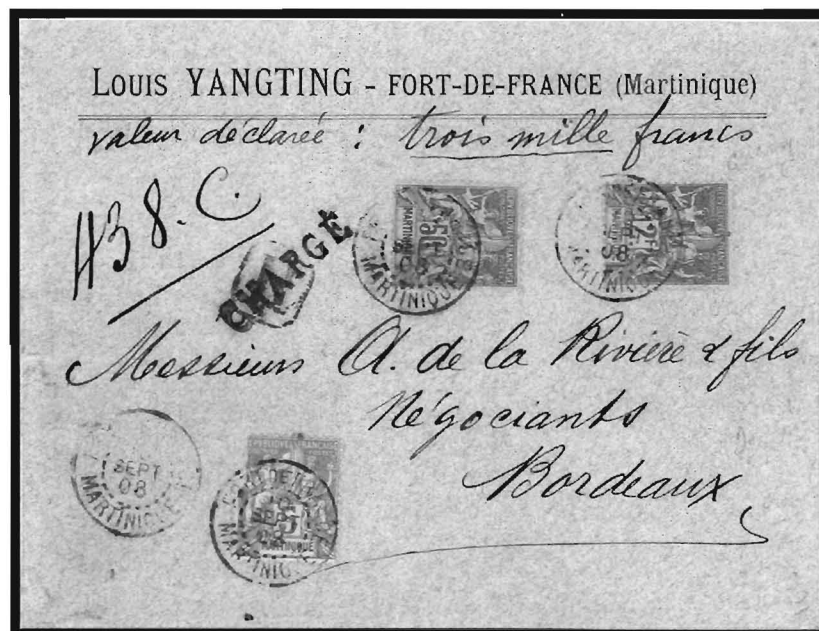 LOUIS YANGTING - FORT-DE-FRANCE (Martinique)
valeur déclarée : trois mille francs
438. C.
CHARGÉ
MARTINIQUE
08
MARTINIQUE
08
Messieurs A. de la Rivière & fils
Négociants
Bordeaux
SEPT
08
MARTINIQUE
RÉPUBLIQUE FRANÇAISE
SEPT
MARTINIQUE